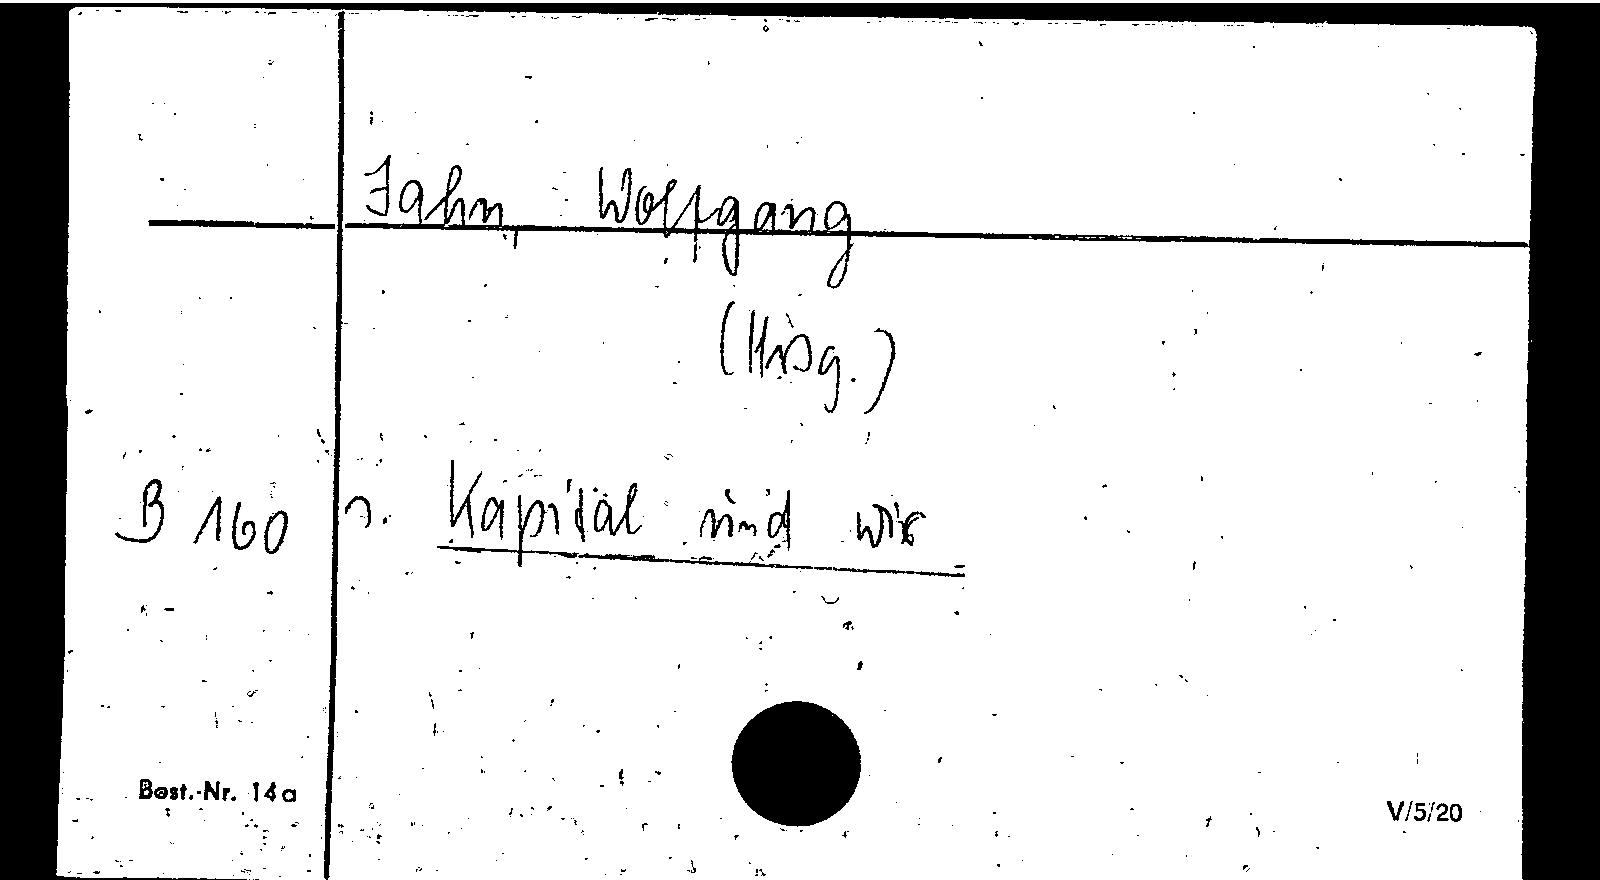 Jahn, Wolfgang
(Hrsg.)
B 160 s. Kapital und wir
Best.-Nr. 14a
V/5/20